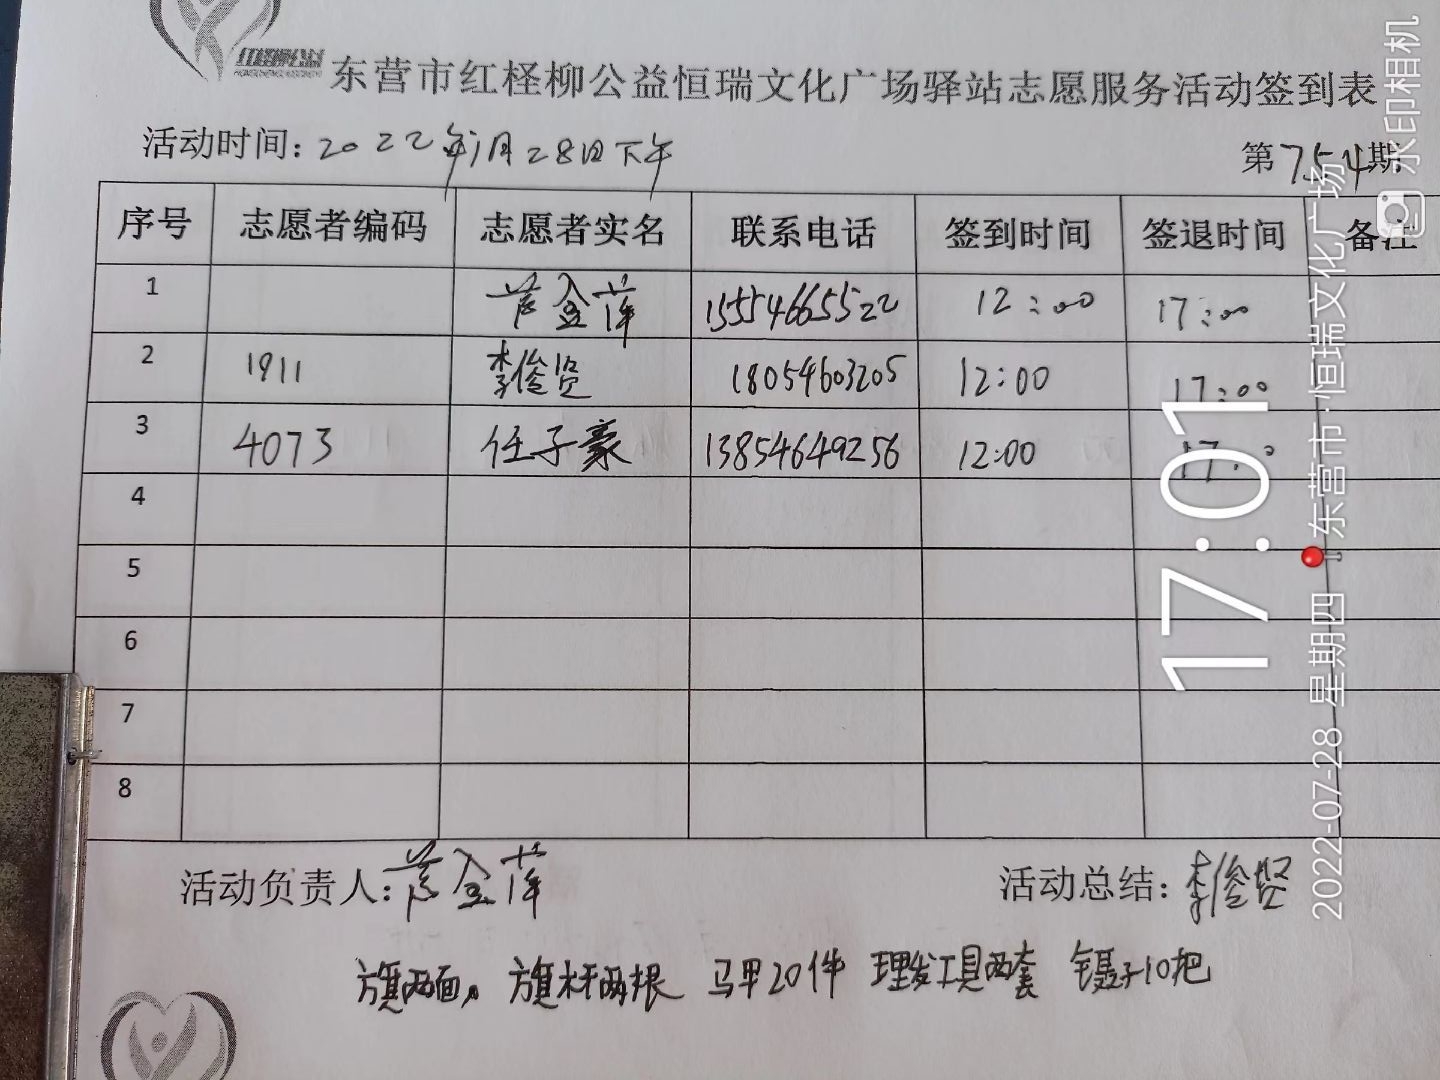 东营市红柽柳公益恒瑞文化广场驿站志愿服务活动签到表
活动时间：2022年7月28日下午 第754期
序号 志愿者编码 志愿者实名 联系电话 签到时间 签退时间 备注
1 金萍 15554665522 12:00 17:00
2 1911 李俊贤 18054603205 12:00 17:00
3 4073 任子豪 13854649256 12:00 17:
4
5
6
7
8
活动负责人： 金萍 活动总结：李俊贤
旗两面，旗杆两根 马甲20件 理发工具两套 镊子10把
水印相机
17:01
2022-07-28 星期四 东营市·恒瑞文化广场